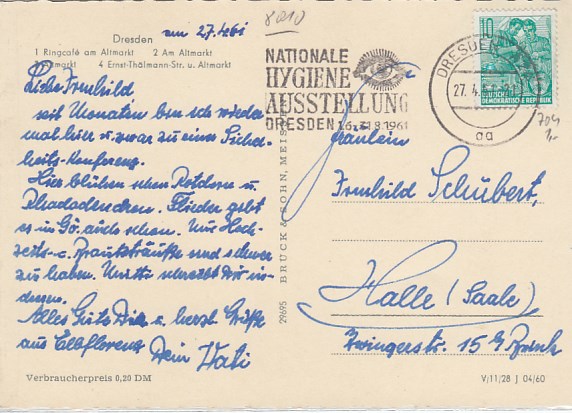 am 27.4.61
8010
Dresden
1 Ringcafé am Altmarkt 2 Am Altmarkt
3 Altmarkt 4 Ernst-Thälmann-Str. u. Altmarkt
Liebe Irmhild
seit Monaten bin ich wieder
mal hier u. zwar zu einer Sicher-
heits-Konferenz.
Hier blühen schon Rotdorn u.
Rhododendron. Flieder gibt
es in Gö. auch schon. Nur Hoch-
zeits- u. Brautsträuße sind schwer
zu haben. Mutti schreibt Dir in-
dessen.
Alles Gute Dir u. herzl. Grüße
aus Elbflorenz Dein Vati
Verbraucherpreis 0,20 DM
29695 BRUCK & SOHN, MEISSEN
NATIONALE
HYGIENE
AUSSTELLUNG
DRESDEN 1.6.-31.8.1961
DRESDEN
27. 4. 61
aa
10
DEUTSCHE
DEMOKRATISCHE REPUBLIK
704
1,-
Fräulein
Irmhild Schubert,
Halle (Saale)
Zwingerstr. 15
V/11/28 J 04/60